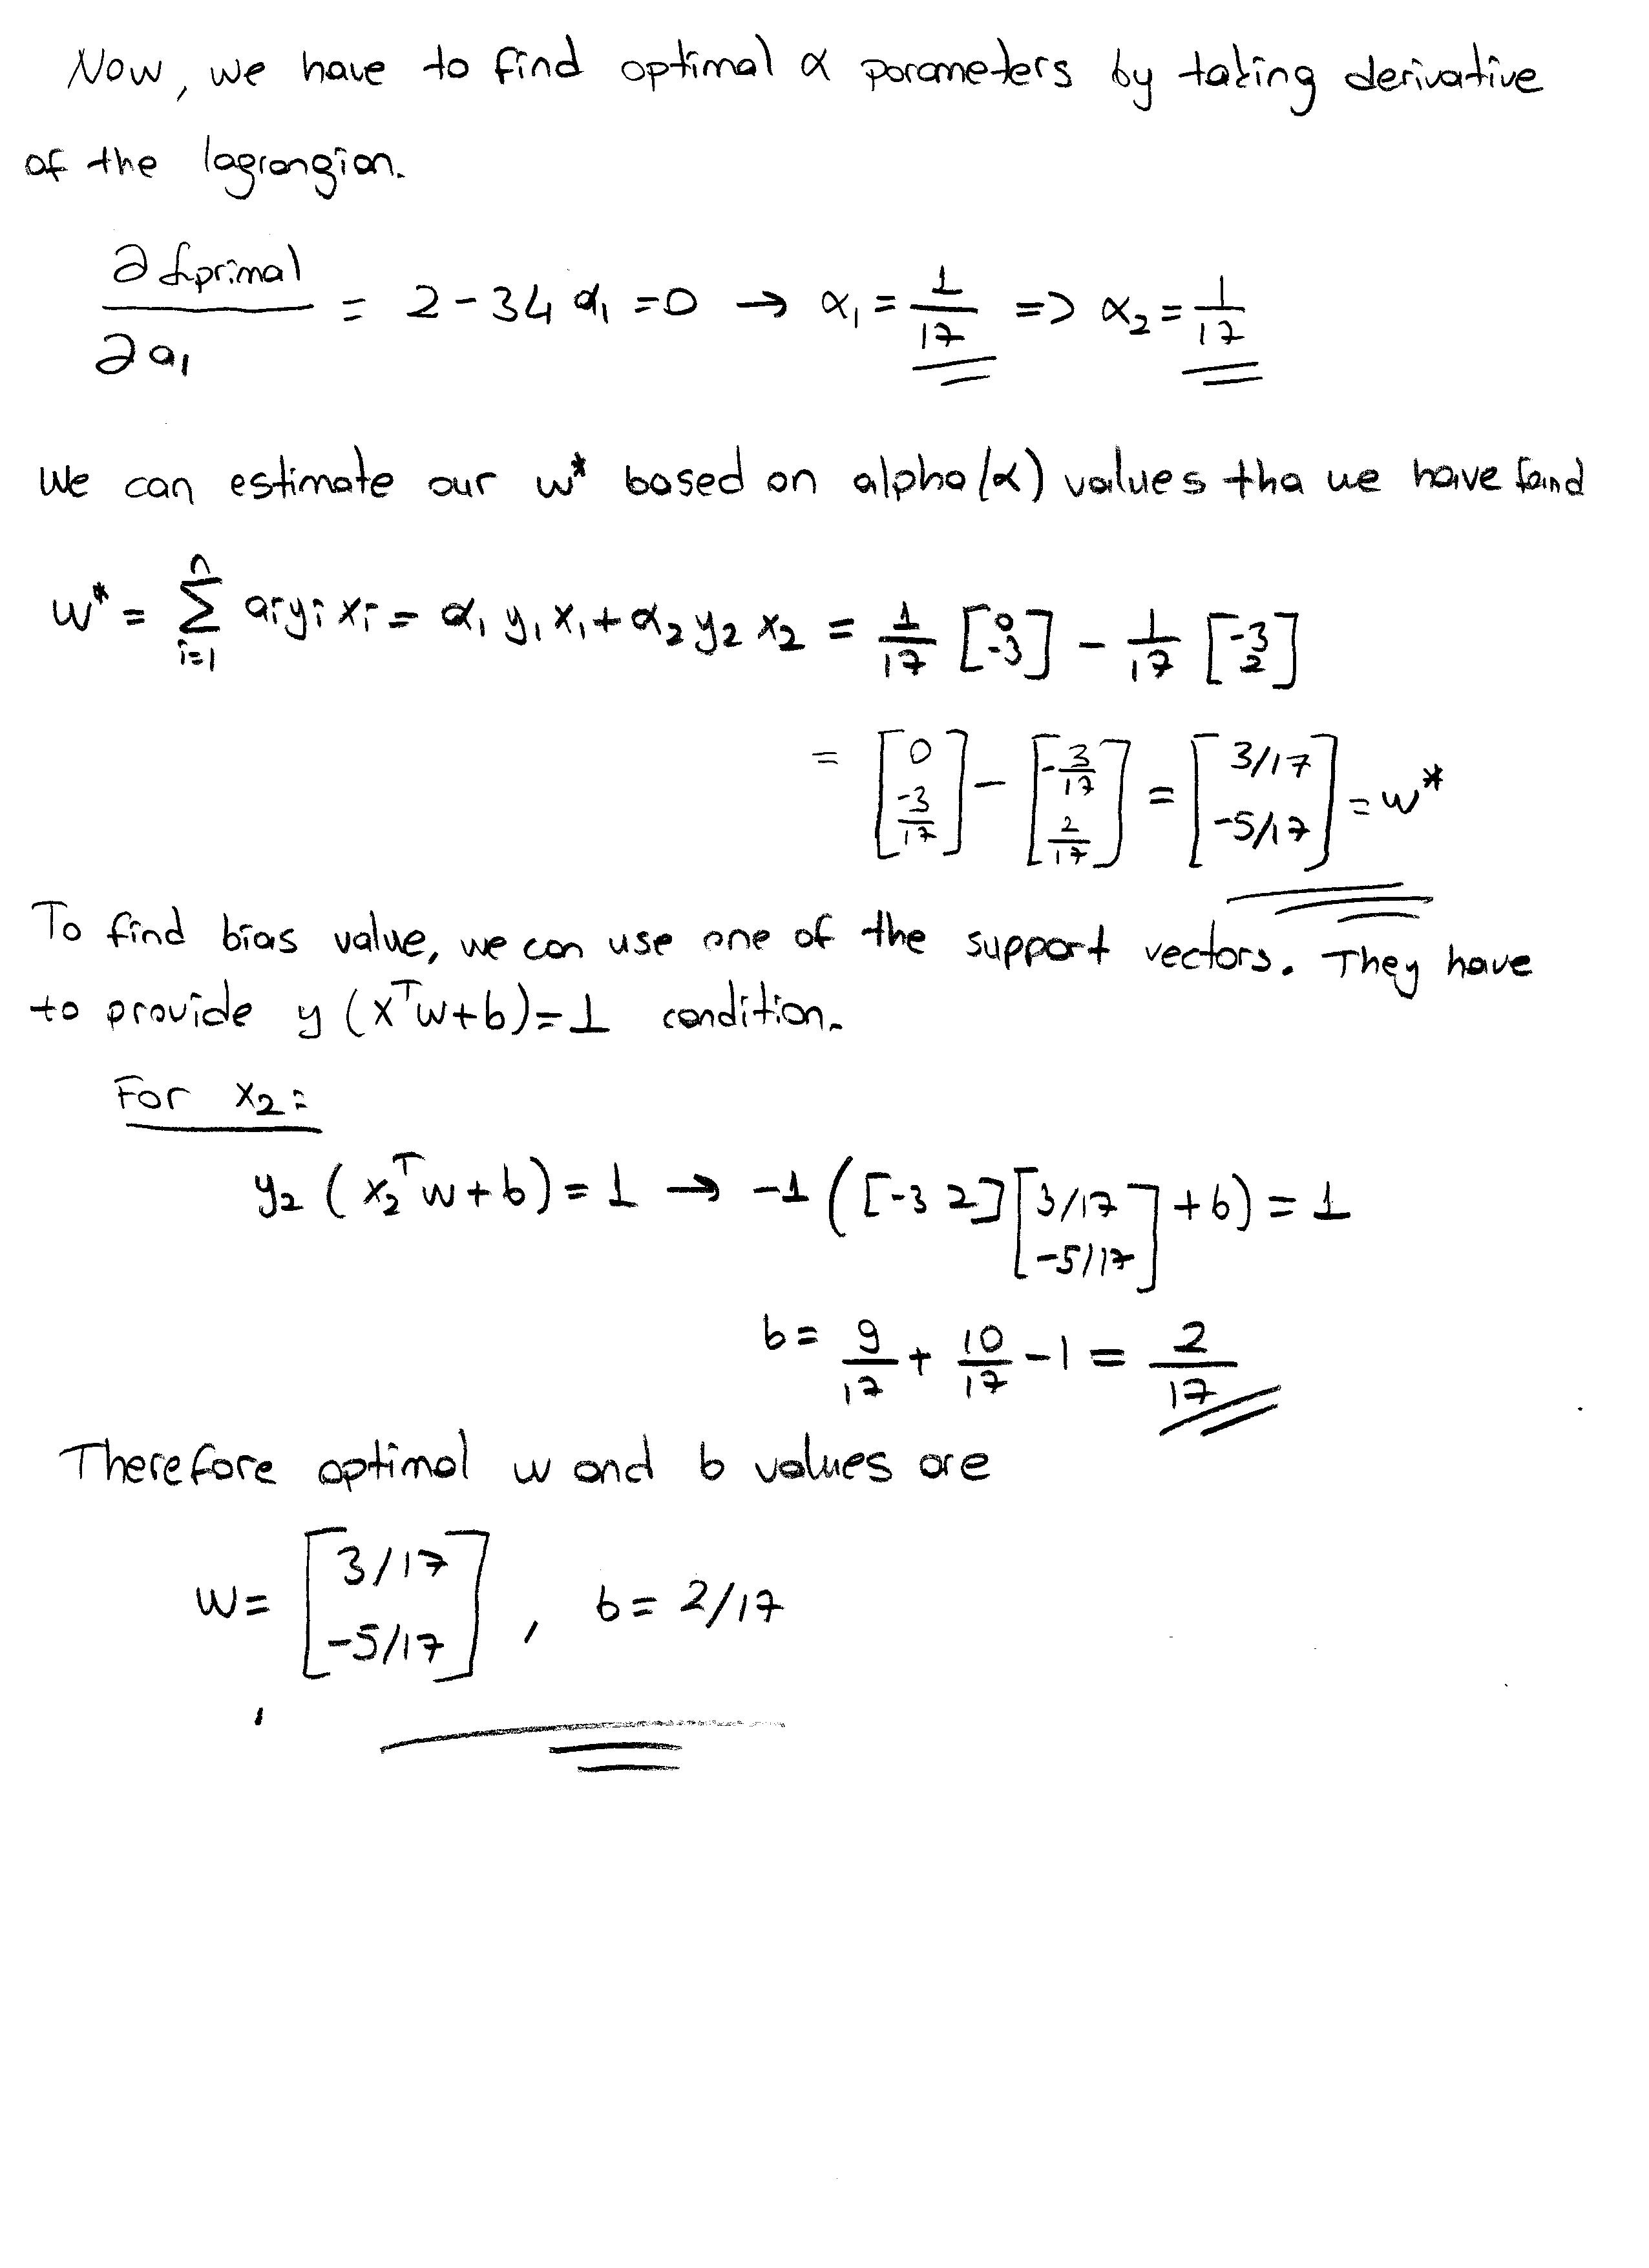 Now, we have to find optimal α parameters by taking derivative
of the lagrangian.
∂ℒprimal / ∂a₁ = 2 - 34 α₁ = 0 → α₁ = 1/17 => α₂ = 1/17
We can estimate our w* based on alpha(α) values tha we have
w* = Σ_{i=1}^{n} aᵢyᵢxᵢ = α₁y₁x₁ + α₂y₂x₂ = 1/17 [0 -3] - 1/17 [-3 2]
= [0 -3/17] - [-3/17 2/17] = [3/17 -5/17] = w*
To find bias value, we can use one of the support vectors. They have
to provide y (xᵀw+b)=1 condition.
For x₂:
y₂ (x₂ᵀw+b) = 1 → -1 ([-3 2] [3/17 -5/17] + b) = 1
b = 9/17 + 10/17 - 1 = 2/17
Therefore optimal w and b values are
w = [3/17 -5/17] , b = 2/17